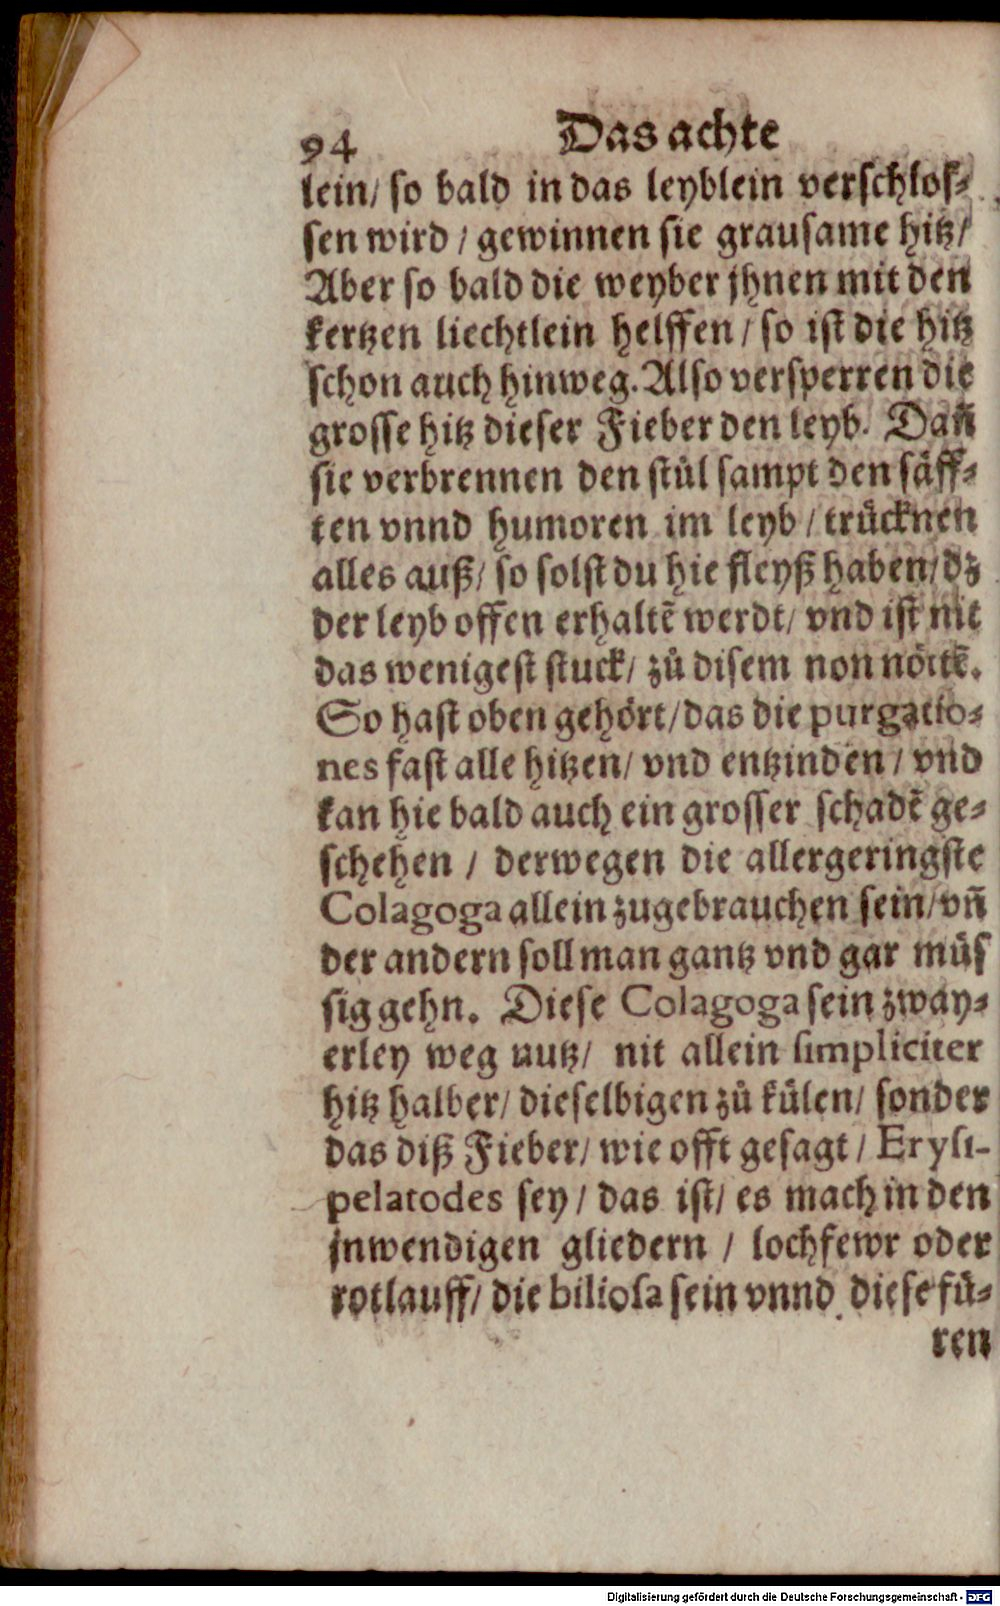 94 Das achte
lein/ so bald in das leyblein verschlos-
sen wird / gewinnen sie grausame hitz/
Aber so bald die weyber jhnen mit den
kertzen liechtlein helffen / so ist die hitz
schon auch hinweg. Also versperren die
grosse hitz dieser Fieber den leyb. Dañ
sie verbrennen den stůl sampt den säff-
ten vnnd humoren im leyb / trücknen
alles auß/ so solst du hie fleyß haben/ dz
der leyb offen erhaltẽ werdt/ vnd ist nit
das wenigest stuck/ zů disem non nöttẽ.
So hast oben gehört/ das die purgatio-
nes fast alle hitzen/ vnd entzinden / vnd
kan hie bald auch ein grosser schadẽ ge-
schehen / derwegen die allergeringste
Colagoga allein zugebrauchen sein/ vñ
der andern soll man gantz vnd gar müs
sig gehn. Diese Colagoga sein zway-
erley weg nutz/ nit allein simpliciter
hitz halber/ dieselbigen zů külen/ sonder
das diß Fieber/ wie offt gesagt / Erysi-
pelatodes sey / das ist/ es mach in den
jnwendigen gliedern / lochfewr oder
rotlauff/ die biliosa sein vnnd diese fü-
ren
Digitalisierung gefördert durch die Deutsche Forschungsgemeinschaft - DFG